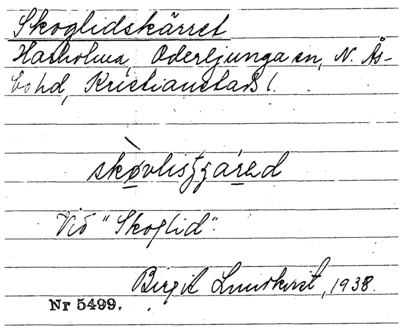 Skoglidskärret
Hasholma, Oderljunga sn, N. Ås-
bo hd, Kristianstads l.
Vid "Skoglid".
Birgit Lundkvist, 1938.
Nr 5499.